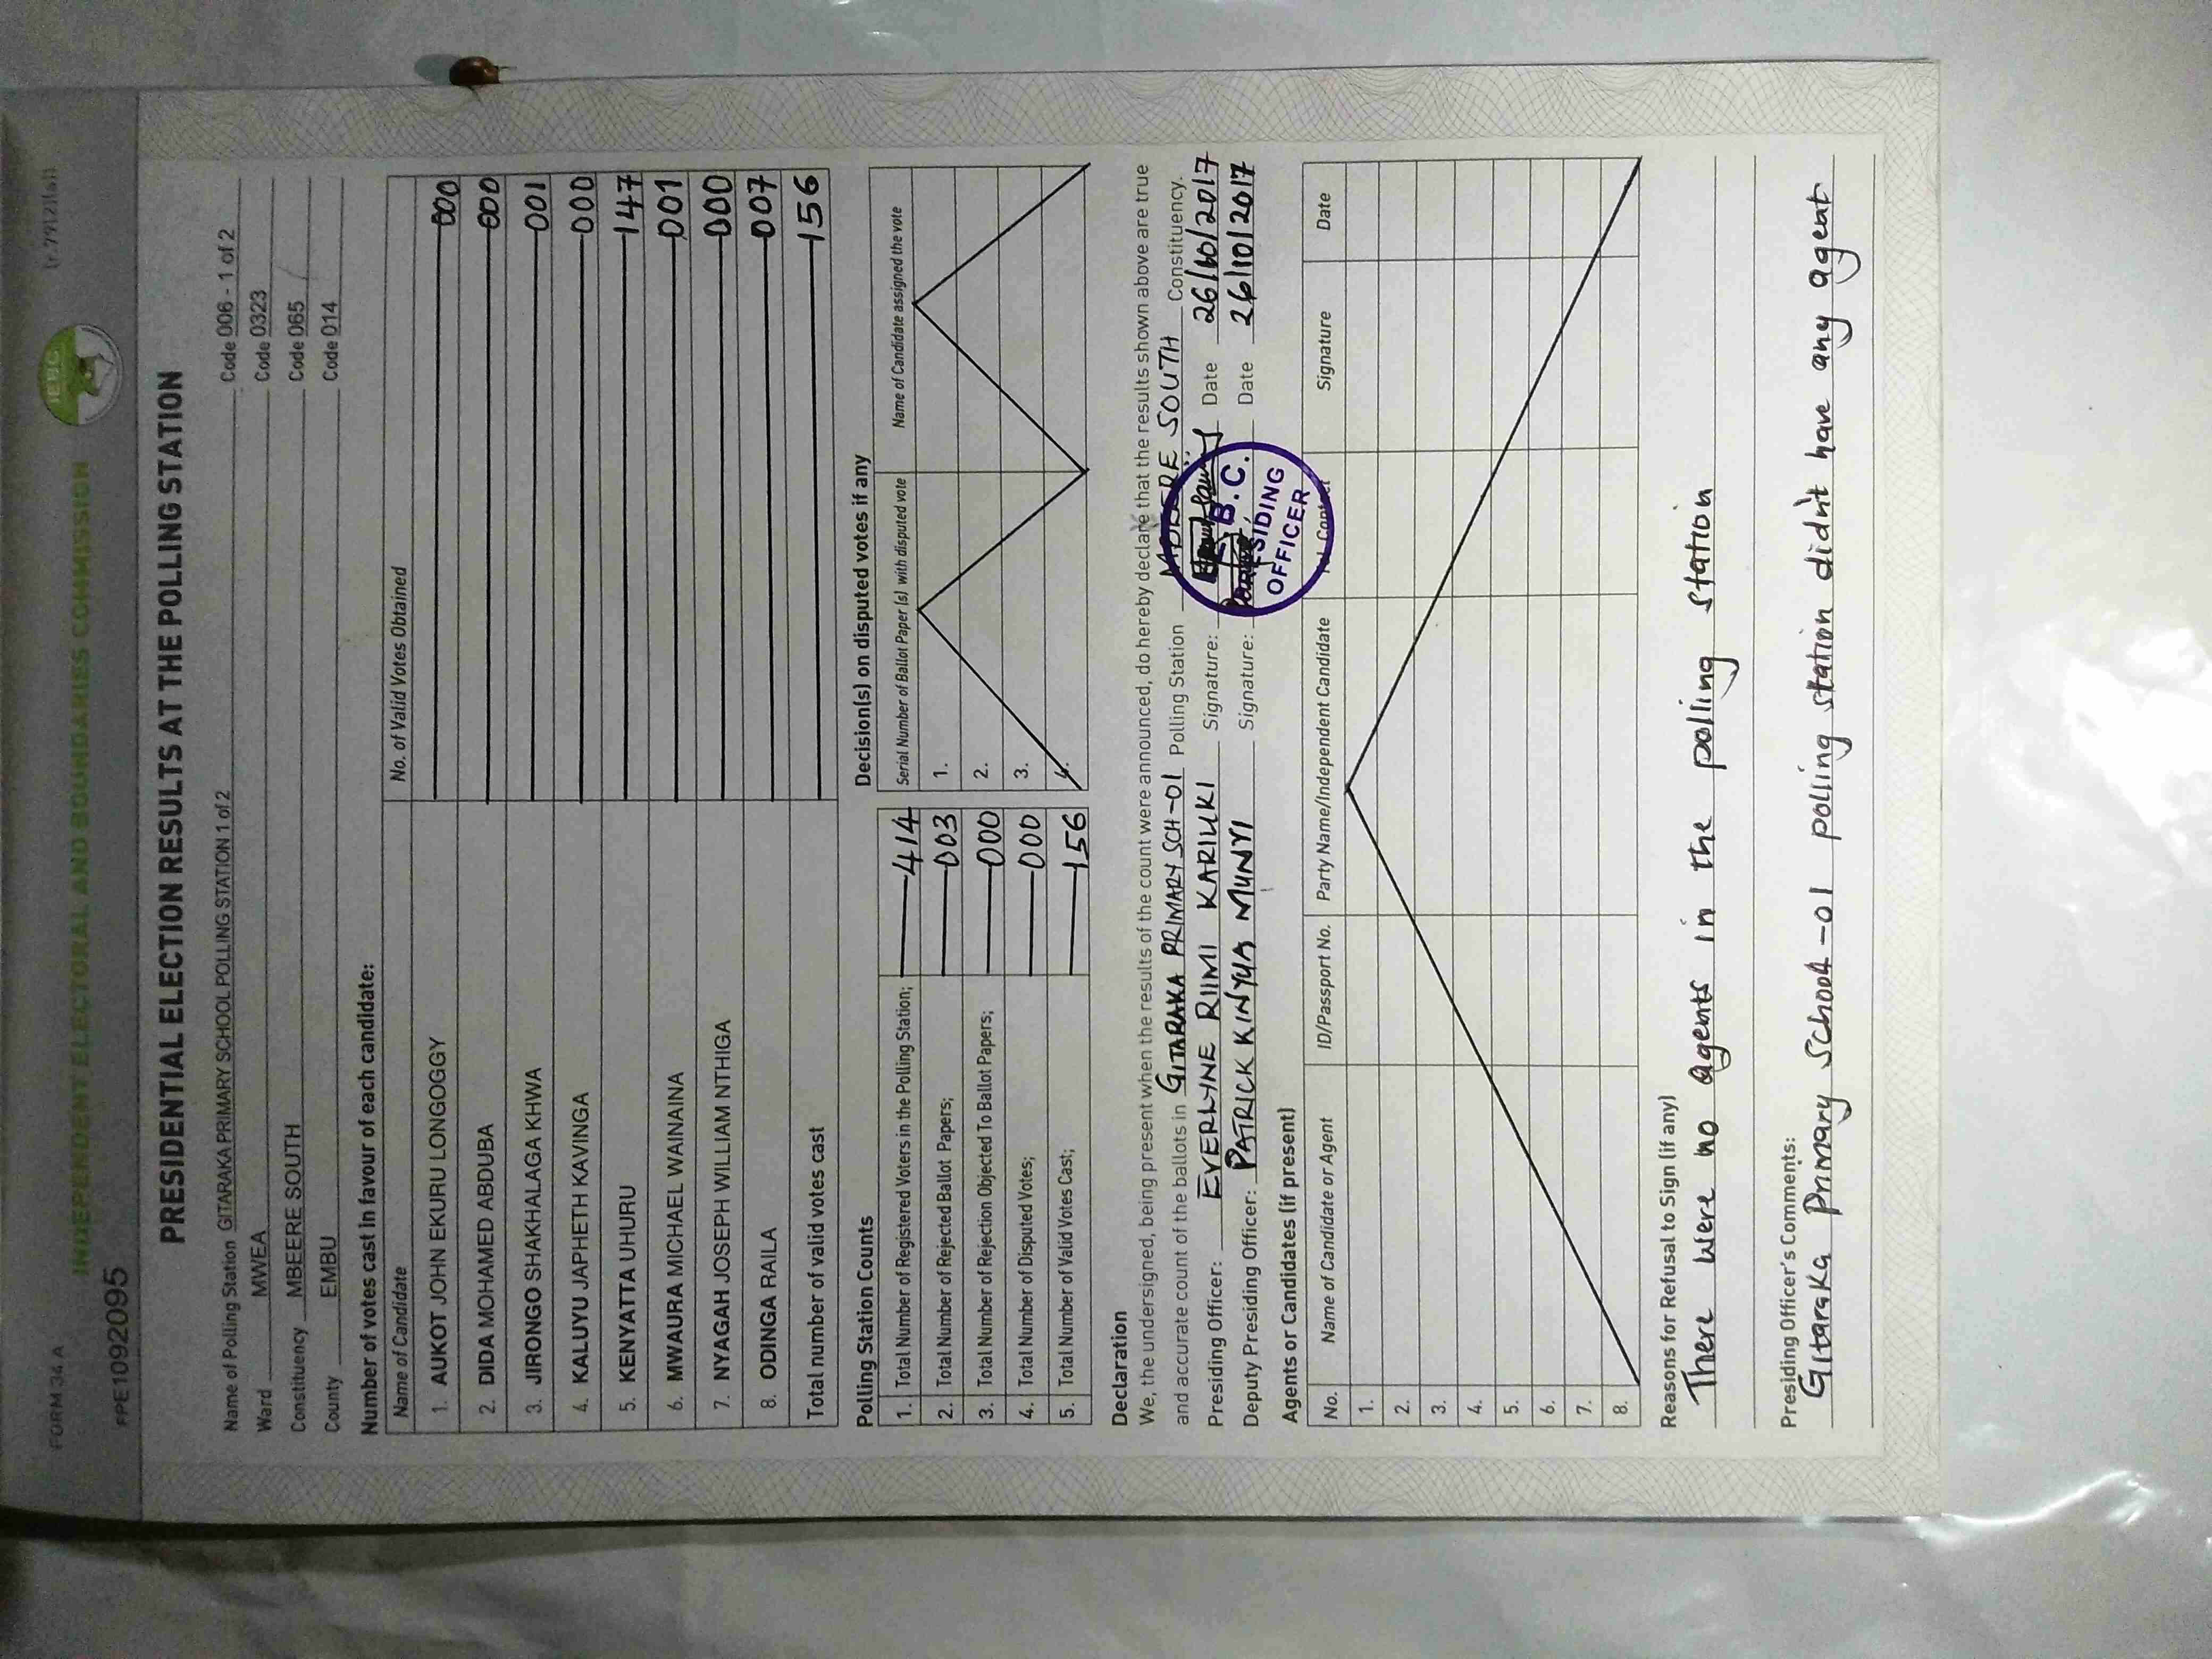 FORM 34 A
INDEPENDENT ELECTORAL AND BOUNDARIES COMMISSION
IEBC
FPE1092095
PRESIDENTIAL ELECTION RESULTS AT THE POLLING STATION
Name of Polling Station GITARAKA PRIMARY SCHOOL POLLING STATION 1 of 2 Code 006 - 1 of 2
Ward MWEA Code 0323
Constituency MBEERE SOUTH Code 065
County EMBU Code 014
Number of votes cast in favour of each candidate:
Name of Candidate No. of Valid Votes Obtained
1. AUKOT JOHN EKURU LONGOGGY 000
2. DIDA MOHAMED ABDUBA 000
3. JIRONGO SHAKHALAGA KHWA 001
4. KALUYU JAPHETH KAVINGA 000
5. KENYATTA UHURU 147
6. MWAURA MICHAEL WAINAINA 001
7. NYAGAH JOSEPH WILLIAM NTHIGA 000
8. ODINGA RAILA 007
Total number of valid votes cast 156
Polling Station Counts
1. Total Number of Registered Voters in the Polling Station; 414
2. Total Number of Rejected Ballot Papers; 003
3. Total Number of Rejection Objected To Ballot Papers; 000
4. Total Number of Disputed Votes; 000
5. Total Number of Valid Votes Cast; 156
Decision(s) on disputed votes if any
Serial Number of Ballot Paper (s) with disputed vote Name of Candidate assigned the vote
1.
2.
3.
4.
Declaration
We, the undersigned, being present when the results of the count were announced, do hereby declare that the results shown above are true
and accurate count of the ballots in GITARAKA PRIMARY SCH-01 Polling Station MBEERE SOUTH Constituency.
Presiding Officer: EVERLYNE RIIMI KARIUKI Signature: Date 26/10/2017
Deputy Presiding Officer: PATRICK KINYUA MUNYI Signature: Date 26/10/2017
B.C.
SIDING
OFFICER
Agents or Candidates (if present)
No. Name of Candidate or Agent ID/Passport No. Party Name/Independent Candidate Signature Date
1.
2.
3.
4.
5.
6.
7.
8.
Reasons for Refusal to Sign (if any)
There were no agents in the polling station
Presiding Officer's Comments:
Gitaraka Primary School -01 polling station didn't have any agent